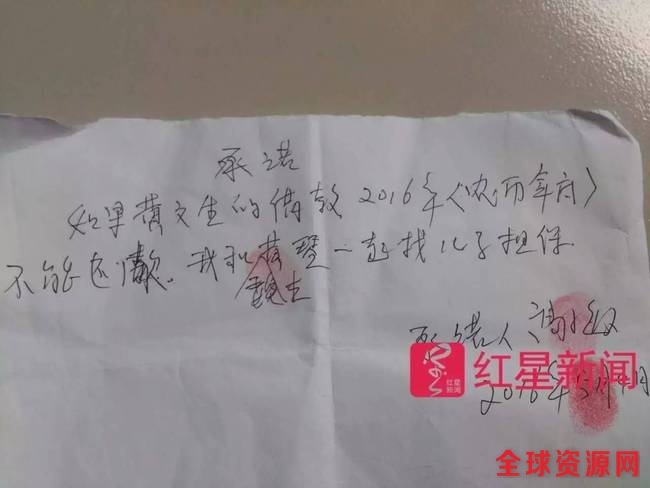 承诺
如果黄文生的借款2016年《农历年前》
不能还清款.我和黄 一起找儿子担保.
承诺人
2016年 月 日
红星新闻
红星
新闻
全球资源网